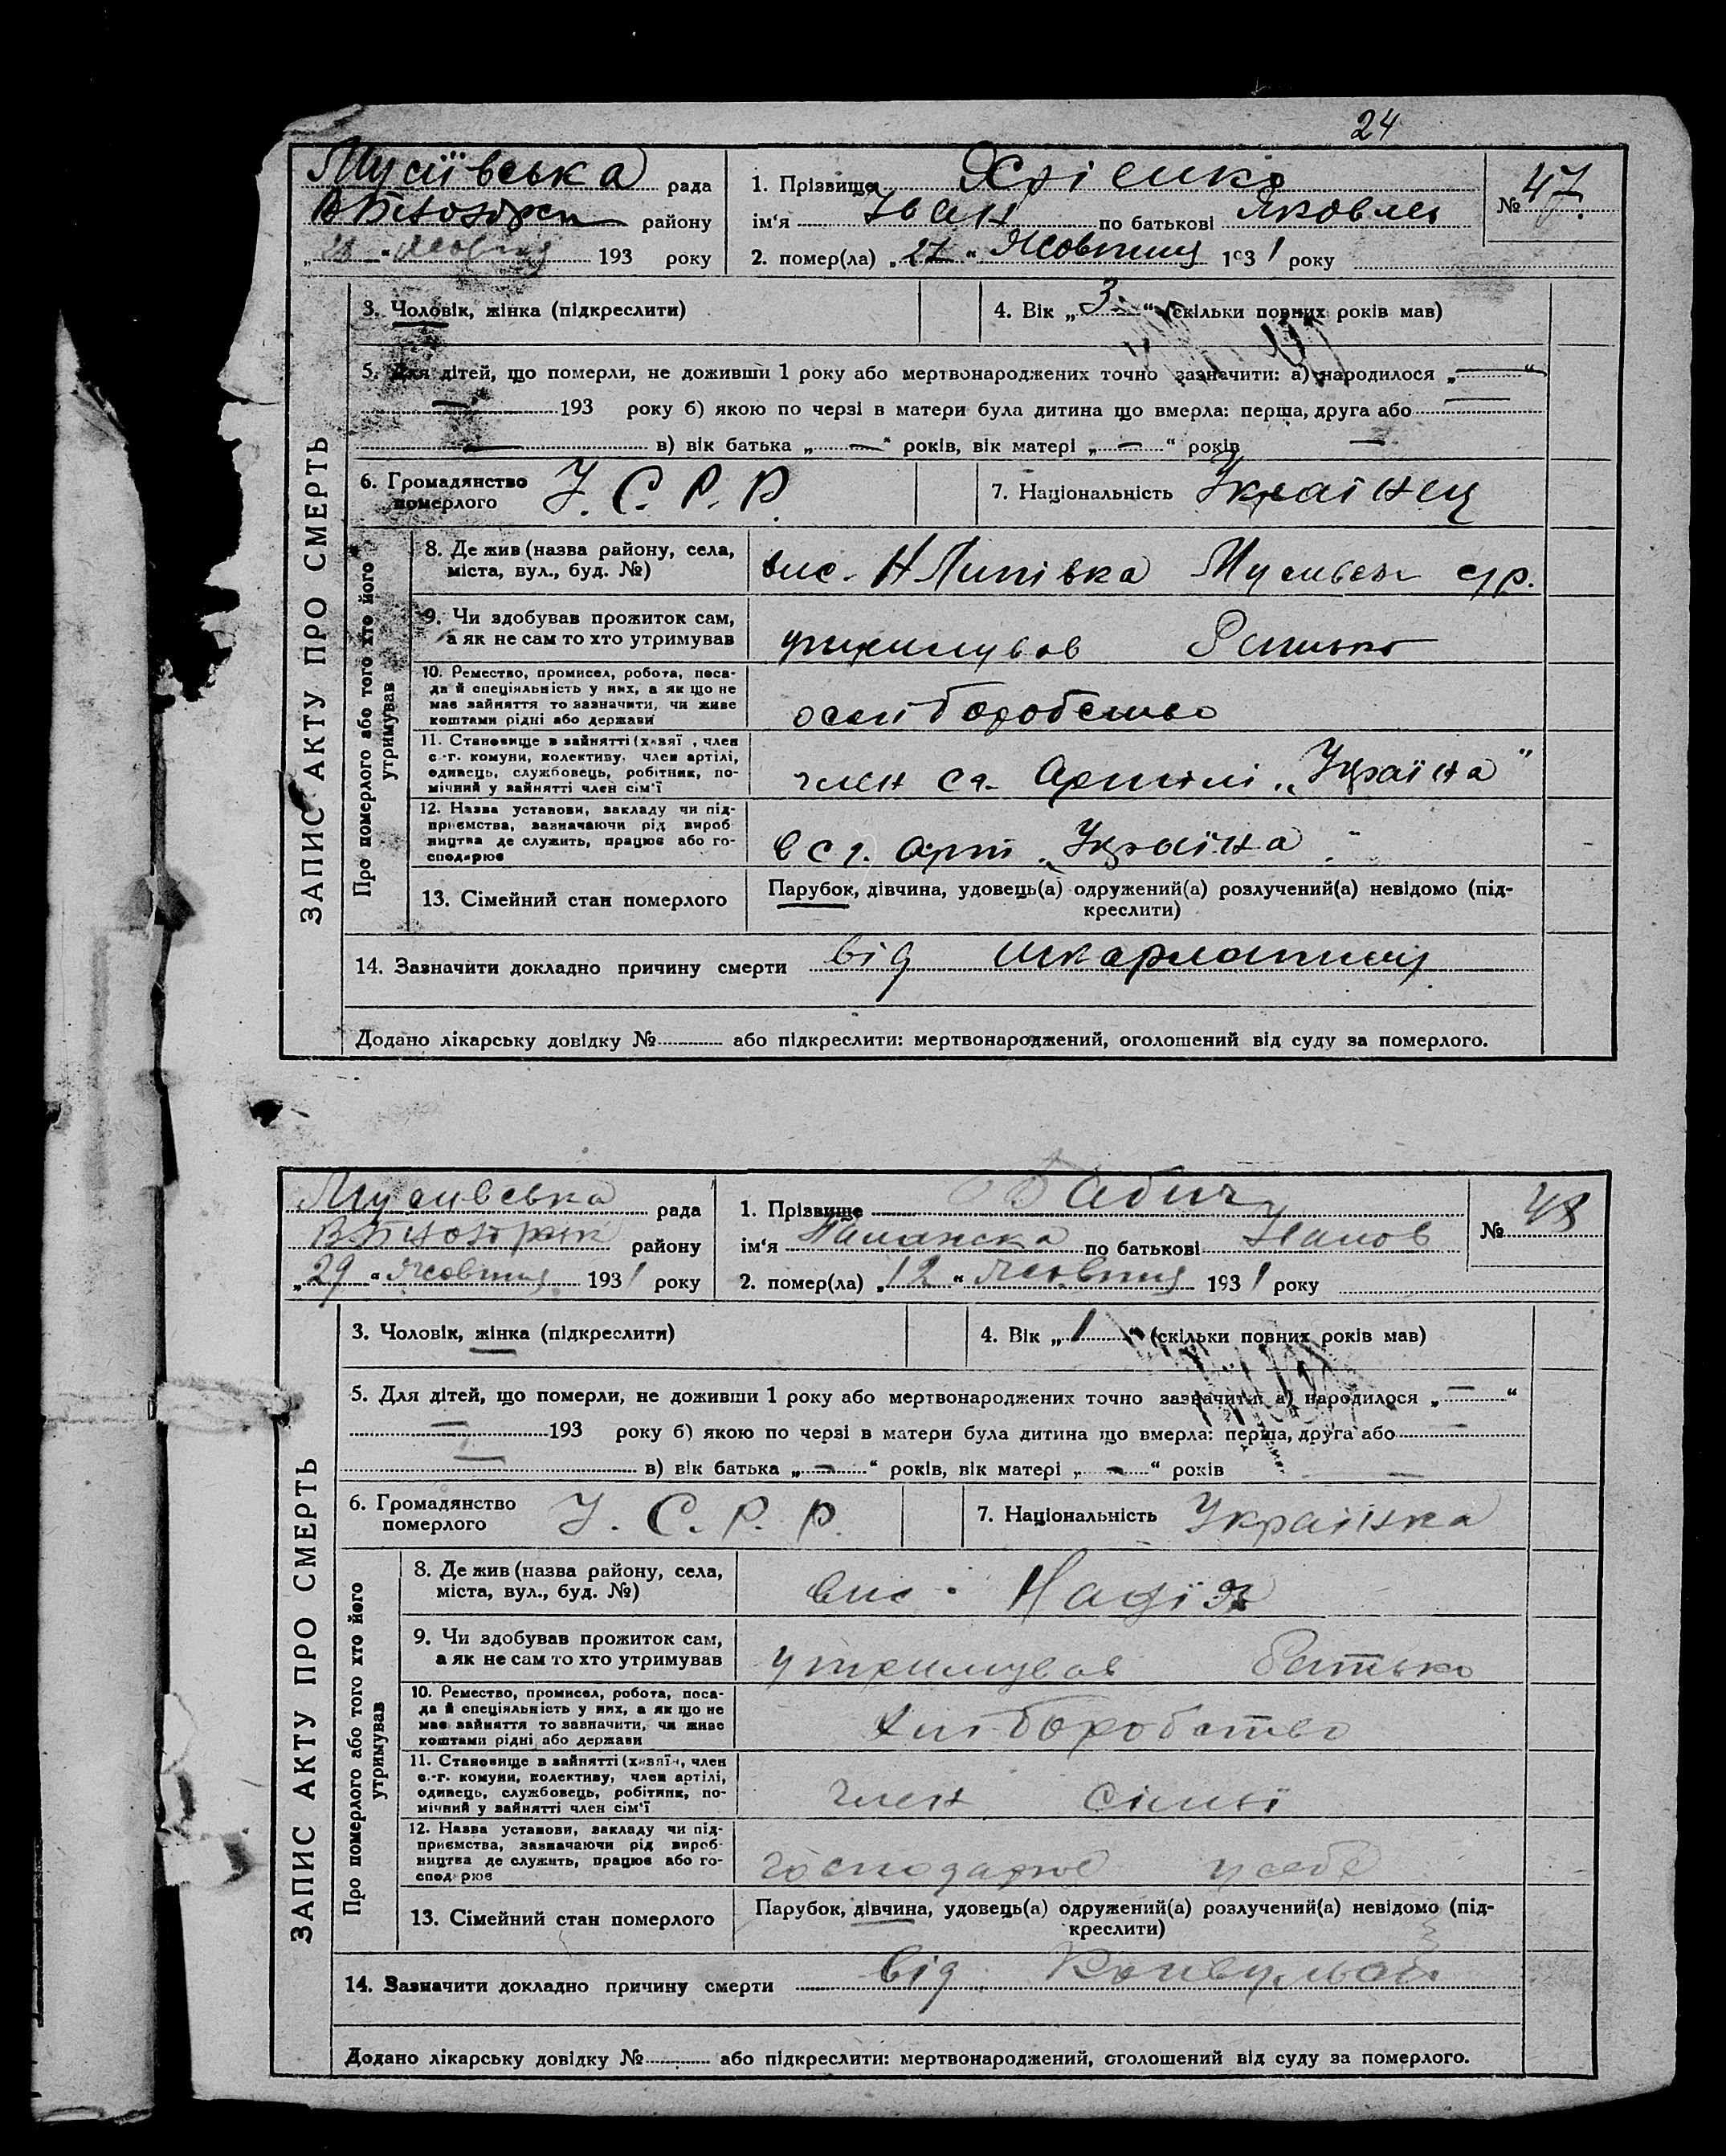 24
Мусіївська рада
В Білозірк району
"28" Жовтня 193 року
1. Прізвище
ім'я Іван по батькові Яковлев
№ 47.
2. помер(ла) "27" Жовтня 1931 року
ЗАПИС АКТУ ПРО СМЕРТЬ
3. Чоловік, жінка (підкреслити)
4. Вік "3" (скільки повних років мав)
5. Для дітей, що померли, не доживши 1 року або мертвонароджених точно зазначити: а) народилося "—"
— 193 року б) якою по черзі в матери була дитина що вмерла: перша, друга або —
— в) вік батька "—" років, вік матері "—" років —
6. Громадянство померлого У. С. Р. Р.
7. Національність Українец
Про померлого або того хто його утримував
8. Де жив (назва району, села,
міста, вул., буд. №)
вис. Н Липівка Мусивск с/р.
9. Чи здобував прожиток сам,
а як не сам то хто утримував
утримував Батько
10. Ремество, промисел, робота, поса-
да й спеціяльність у них, а як що не
має зайняття то зазначити, чи живе
коштами рідні або держави
11. Становище в зайнятті (хазяї , член
с.-г. комуни, колективу, член артілі,
одинець, службовець, робітник, по-
мічний у зайнятті член сім'ї
член сг. Артілі „Україна"
12. Назва установи, закладу чи під-
приємства, зазначаючи рід вироб
ництва де служить, працює або го-
сподарює
в с г. арт „Україна"
13. Сімейний стан померлого
Парубок, дівчина, удовець(а) одружений(а) розлучений(а) невідомо (під-
креслити)
14. Зазначити докладно причину смерти від шкарлатини
Додано лікарську довідку № або підкреслити: мертвонароджений, оголошений від суду за померлого.
Мусивська рада
В.Білозірк району
"29" Жовтня 1931 року
1. Прізвище Бабич
ім'я по батькові Іванов
№ 48
2. помер(ла) "12" Жовтня 1931 року
ЗАПИС АКТУ ПРО СМЕРТЬ
3. Чоловік, жінка (підкреслити)
4. Вік "1" (скільки повних років мав)
5. Для дітей, що померли, не доживши 1 року або мертвонароджених точно зазначити: а) народилося "—"
— 193 року б) якою по черзі в матери була дитина що вмерла: перша, друга або —
— в) вік батька "—" років, вік матері "—" років —
6. Громадянство померлого У. С. Р. Р.
7. Національність Українка
Про померлого або того хто його утримував
8. Де жив (назва району, села,
міста, вул., буд. №)
вис. Надія
9. Чи здобував прожиток сам,
а як не сам то хто утримував
утримував батько
10. Ремество, промисел, робота, поса-
да й спеціяльність у них, а як що не
має зайняття то зазначити, чи живе
коштами рідні або держави
хліборобство
11. Становище в зайнятті (хазяїн, член
с.-г. комуни, колективу, член артілі,
одинець, службовець, робітник, по-
мічний у зайнятті член сім'ї
член сімьї
12. Назва установи, закладу чи під-
приємства, зазначаючи рід вироб-
ництва де служить, працює або го-
сподарює
господарює у себе
13. Сімейний стан померлого
Парубок, дівчина, удовець(а) одружений(а) розлучений(а) невідомо (під-
креслити)
14. Зазначити докладно причину смерти від
Додано лікарську довідку № або підкреслити: мертвонароджений, оголошений від суду за померлого.